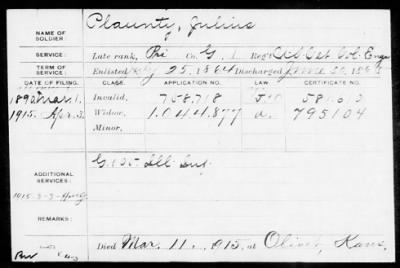 NAME OF SOLDIER: Plaunty, Julius
SERVICE: Late rank, Pri Co. G, 1 Reg't Vet Vol. Engs
TERM OF SERVICE: Enlisted July 25, 1864 Discharged June 30, 1865
DATE OF FILING. CLASS. APPLICATION NO. LAW. CERTIFICATE NO.
Mar. 1. Invalid, 758,718
1915. Apr. 3. Widow, 1,044,877 795104
Minor,
G. 105 Ill. Inf.
ADDITIONAL SERVICES:
REMARKS:
Died Mar. 11, 1915, at Olivet, Kans.